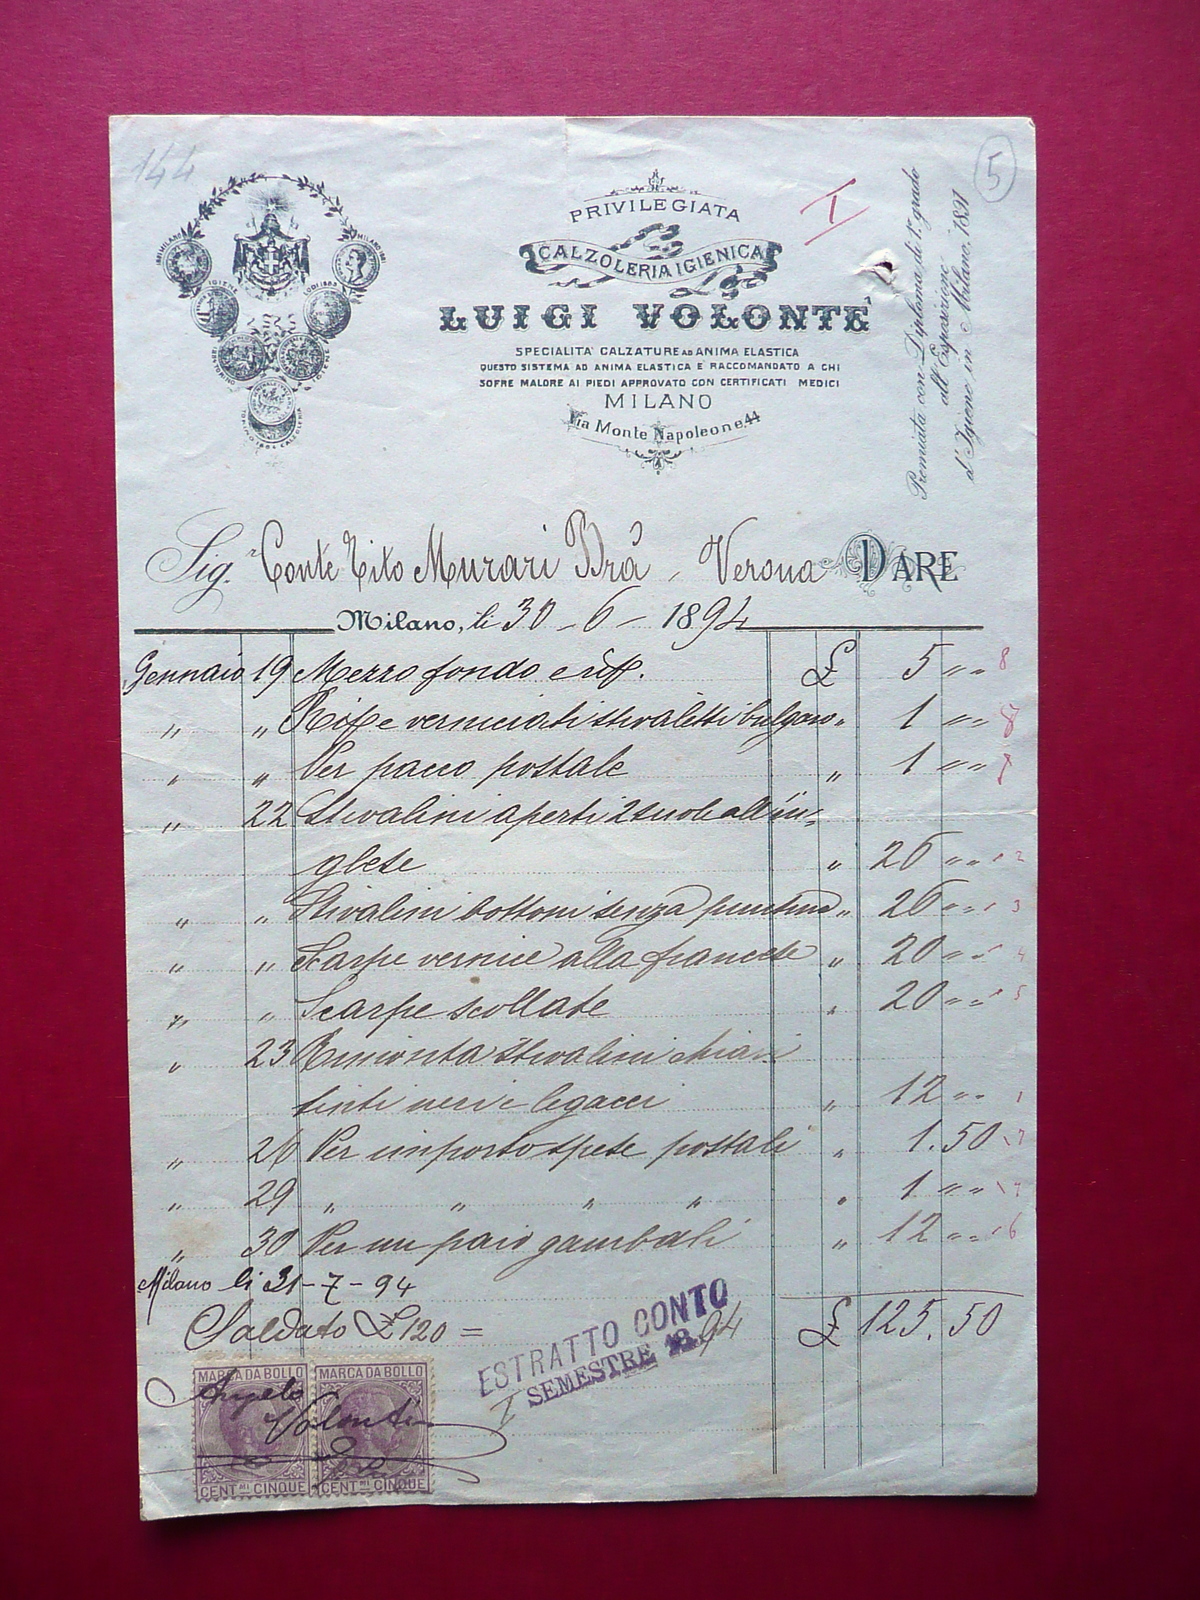 144
5
I
PRIVILEGIATA
CALZOLERIA IGIENICA
LUIGI VOLONTÈ
SPECIALITA' CALZATURE AD ANIMA ELASTICA
QUESTO SISTEMA AD ANIMA ELASTICA E RACCOMANDATO A CHI
SOFRE MALORE AI PIEDI APPROVATO CON CERTIFICATI MEDICI
MILANO
Via Monte Napoleone 44
Premiata con Diploma di 1° grado
all'Esposizione
d'Igiene in Milano, 1891
Sig.r Conte Tito Murari Brà - Verona DARE
Milano, li 30 - 6 - 1894
Gennaio 19 Mezzo fondo e £ 5 " " 8
" " e verniciati stivaletti bulgaro " 1 " " 8
" " Per pacco postale " 1 " "
" 22 Stivalini aperti 2 suole all'in-
glese " 26 " " 2
" " Stivalini bottoni senza " 26 " " 3
" " Scarpe vernice alla francese " 20 " " 4
" " Scarpe scollate " 20 " " 5
" 23 Rimonta stivalini chiari
tinti neri e legacci " 12 " " 1
" 26 Per importo spese postali " 1.50 7
" 29 " " " " " 1 " " 7
" 30 Per un paio gambali " 12 " " 6
Milano li 31-7-94
Saldato £ 120 =
£ 125.50
ESTRATTO CONTO
I SEMESTRE 18 94
MARCA DA BOLLO MARCA DA BOLLO
Angelo
Volontè
CENT.MI CINQUE CENT.MI CINQUE